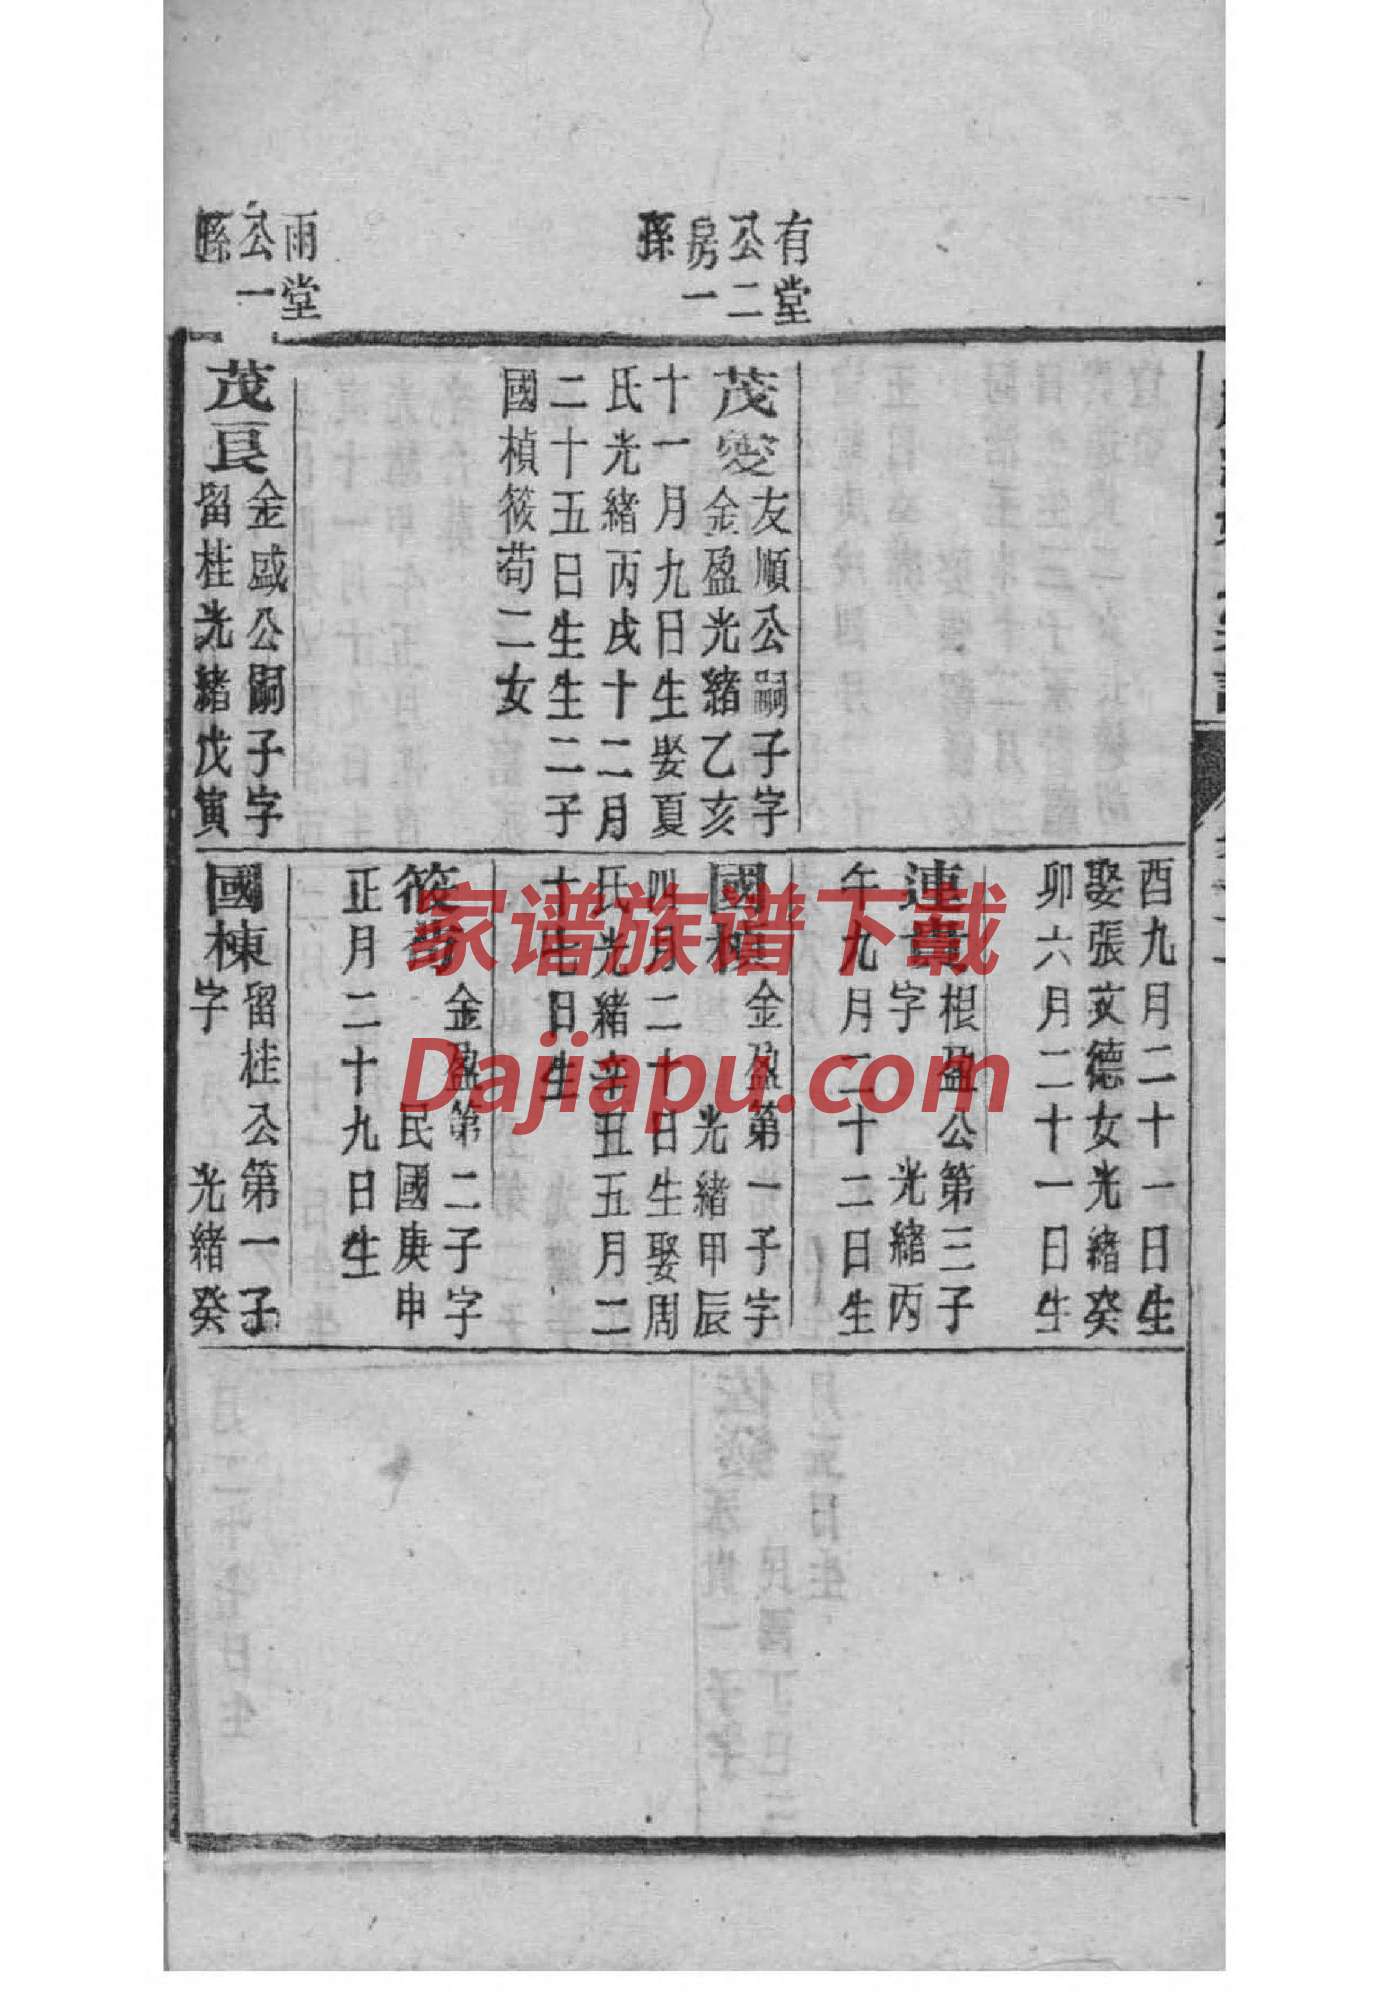 有堂
公二
房一
孫
雨堂
公一
孫
茂變
友順公嗣子字
金盈光緒乙亥
十一月九日生娶夏
氏光緒丙戌十二月
二十五日生生二子
國楨筱苟二女
茂良
金盛公嗣子字
留桂光緒戊寅
酉九月二十一日生
娶張文德女光緒癸
卯六月二十一日生
連貴
根盈公第三子
字 光緒丙
午九月二十二日生
國楨
金盈第一子字
光緒甲辰
四月二十日生娶周
氏光緒辛丑五月二
十七日生
筱苟
金盈第二子字
民國庚申
正月二十九日生
國棟
留桂公第一子
字 光緒癸
家谱族谱下载
Dajiapu.com